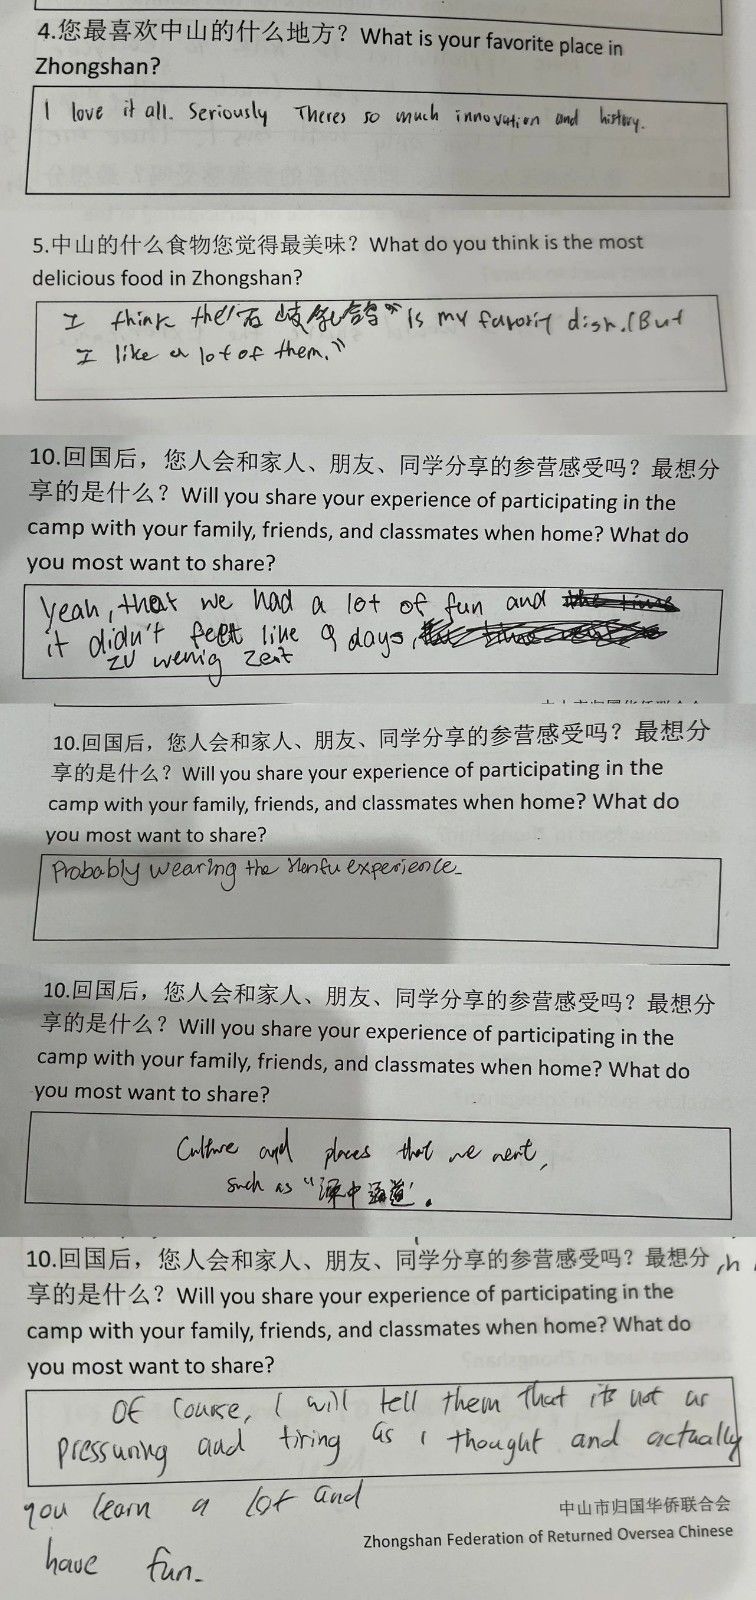 4.您最喜欢中山的什么地方？What is your favorite place in
Zhongshan?
I love it all. Seriously Theres so much innovation and history.
5.中山的什么食物您觉得最美味？What do you think is the most
delicious food in Zhongshan?
I think the "石岐乳鸽" is my favorit dish. (But
I like a lot of them.")
10.回国后，您人会和家人、朋友、同学分享的参营感受吗？最想分
享的是什么？Will you share your experience of participating in the
camp with your family, friends, and classmates when home? What do
you most want to share?
Yeah, that we had a lot of fun and
it didn't feelt like 9 days,
zu wenig zeit
10.回国后，您人会和家人、朋友、同学分享的参营感受吗？最想分
享的是什么？Will you share your experience of participating in the
camp with your family, friends, and classmates when home? What do
you most want to share?
Probably wearing the Hanfu experience.
10.回国后，您人会和家人、朋友、同学分享的参营感受吗？最想分
享的是什么？Will you share your experience of participating in the
camp with your family, friends, and classmates when home? What do
you most want to share?
Culture and places that we went,
such as "深中通道".
10.回国后，您人会和家人、朋友、同学分享的参营感受吗？最想分
享的是什么？Will you share your experience of participating in the
camp with your family, friends, and classmates when home? What do
you most want to share?
Of course, I will tell them that its not as
pressuring and tiring as I thought and actually
you learn a lot and
have fun.
中山市归国华侨联合会
Zhongshan Federation of Returned Oversea Chinese